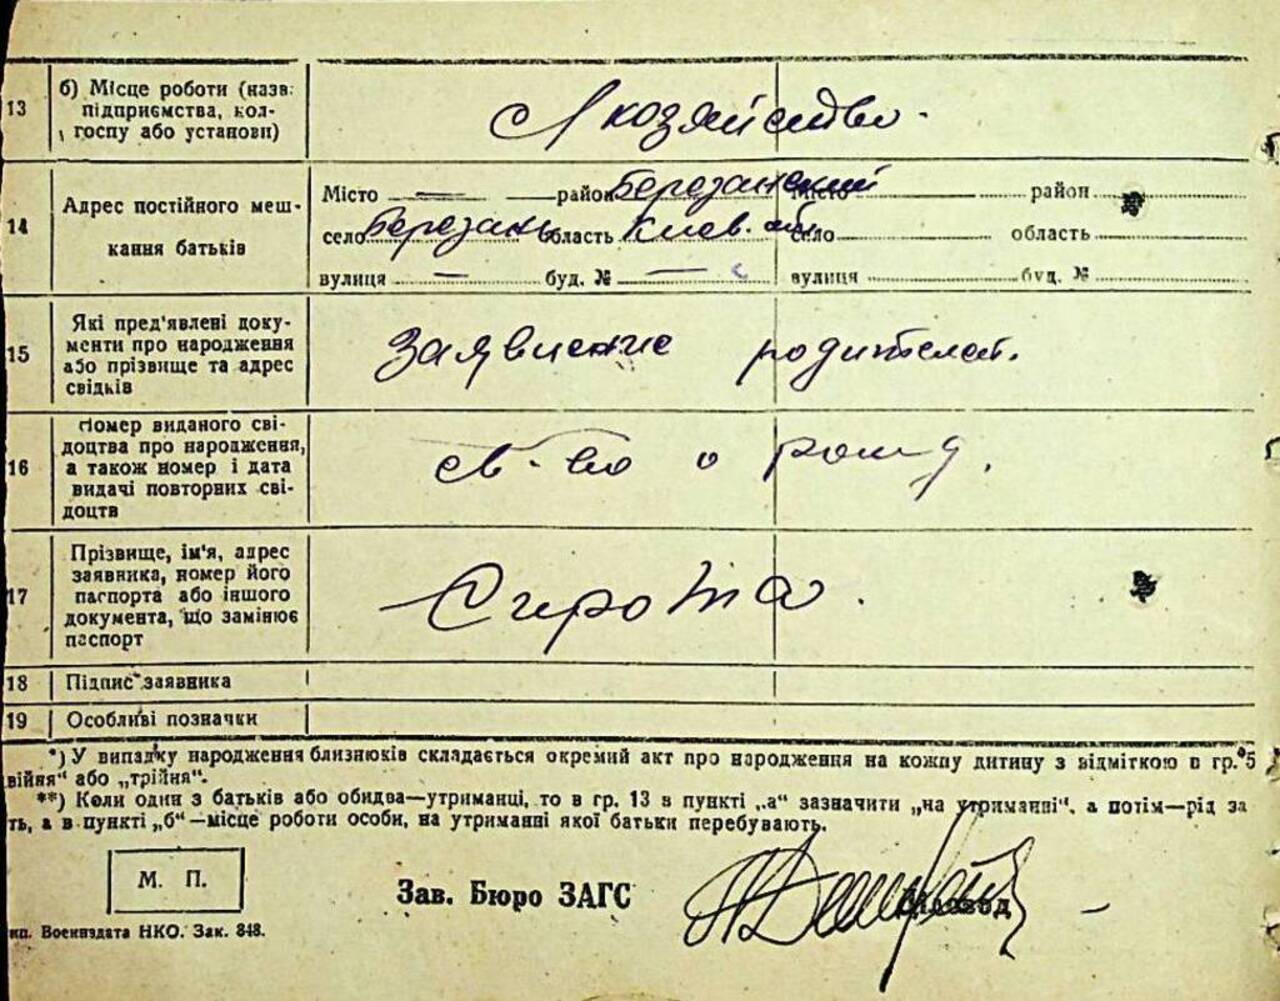 13 б) Місце роботи (назв.
підприємства, кол-
госпу або установи)
С/хозяйство.
14 Адрес постійного меш-
кання батьків
Місто — район Березанский Місто район
село Березань область Киев. обл. село область
вулиця — буд. № — вулиця буд. №
15 Які пред'явлені доку-
менти про народження
або прізвище та адрес
свідків
Заявление родителей.
16 Номер виданого сві-
доцтва про народження,
а також номер і дата
видачі повторних сві-
доцтв
св-во о рожд.
17 Прізвище, ім'я, адрес
заявника, номер його
паспорта або іншого
документа, що замінює
паспорт
Сирота.
18 Підпис заявника
19 Особливі позначки
*) У випадку народження близнюків складається окремий акт про народження на кожну дитину з відміткою в гр. 5
війня“ або „трійня“.
**) Коли один з батьків або обидва—утриманці, то в гр. 13 в пункті „а“ зазначити „на утриманні“, а потім—рід за
ть, а в пункті „б“—місце роботи особи, на утриманні якої батьки перебувають.
М. П.
Зав. Бюро ЗАГС
Воениздата НКО. Зак. 848.